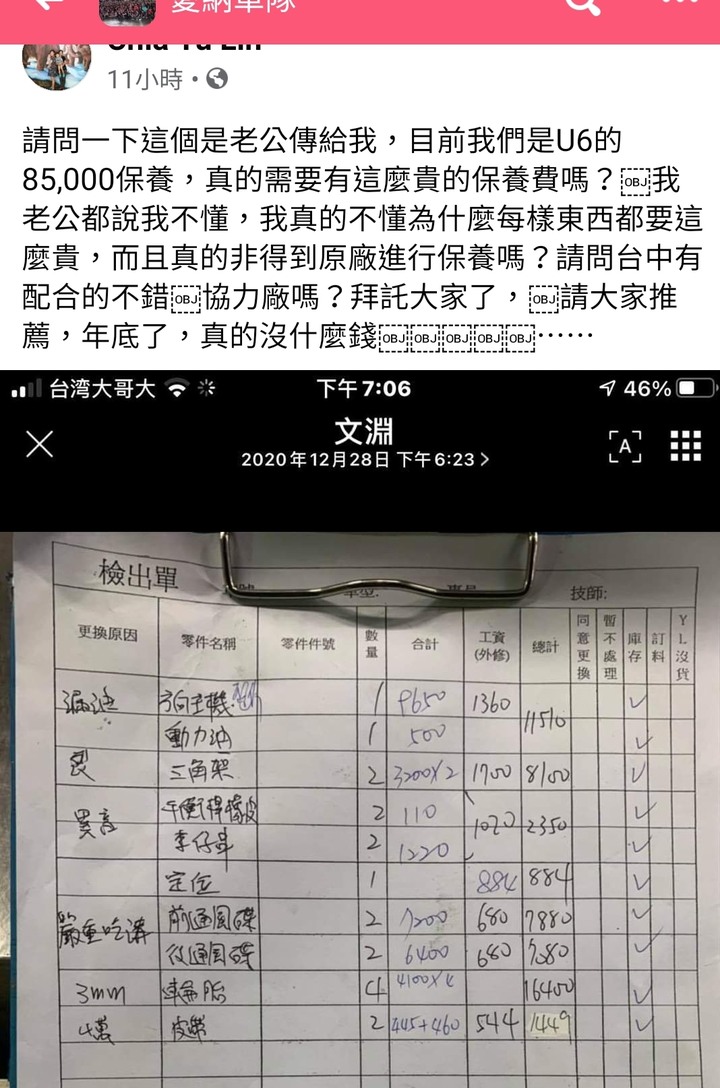 愛納車隊
Chia Yu Lin
11小時
請問一下這個是老公傳給我，目前我們是U6的
85,000保養，真的需要有這麼貴的保養費嗎？OBJ我
老公都說我不懂，我真的不懂為什麼每樣東西都要這
麼貴，而且真的非得到原廠進行保養嗎？請問台中有
配合的不錯OBJ協力廠嗎？拜託大家了，OBJ請大家推
薦，年底了，真的沒什麼錢OBJOBJOBJOBJOBJ……
台湾大哥大 下午7:06 46%
文淵
2020年12月28日 下午6:23
A
檢出單 技師:
更換原因 零件名稱 零件件號 數量 合計 工資(外修) 總計 同意更換 暫不處理 庫存 訂料 YL沒貨
漏油 方向主機 1 9650 1360 11510
動力油 1 500
裂 三角架 2 3200X2 1700 8100
異音 平衡桿橡皮 2 110 1020 2350
李仔串 2 1220
定位 1 884 884
嚴重吃溝 前通風碟 2 7200 680 7880
後通風碟 2 6400 680 7080
3mm 輪胎 4 4100X4 16400
4萬 皮帶 2 445+460 544 1449